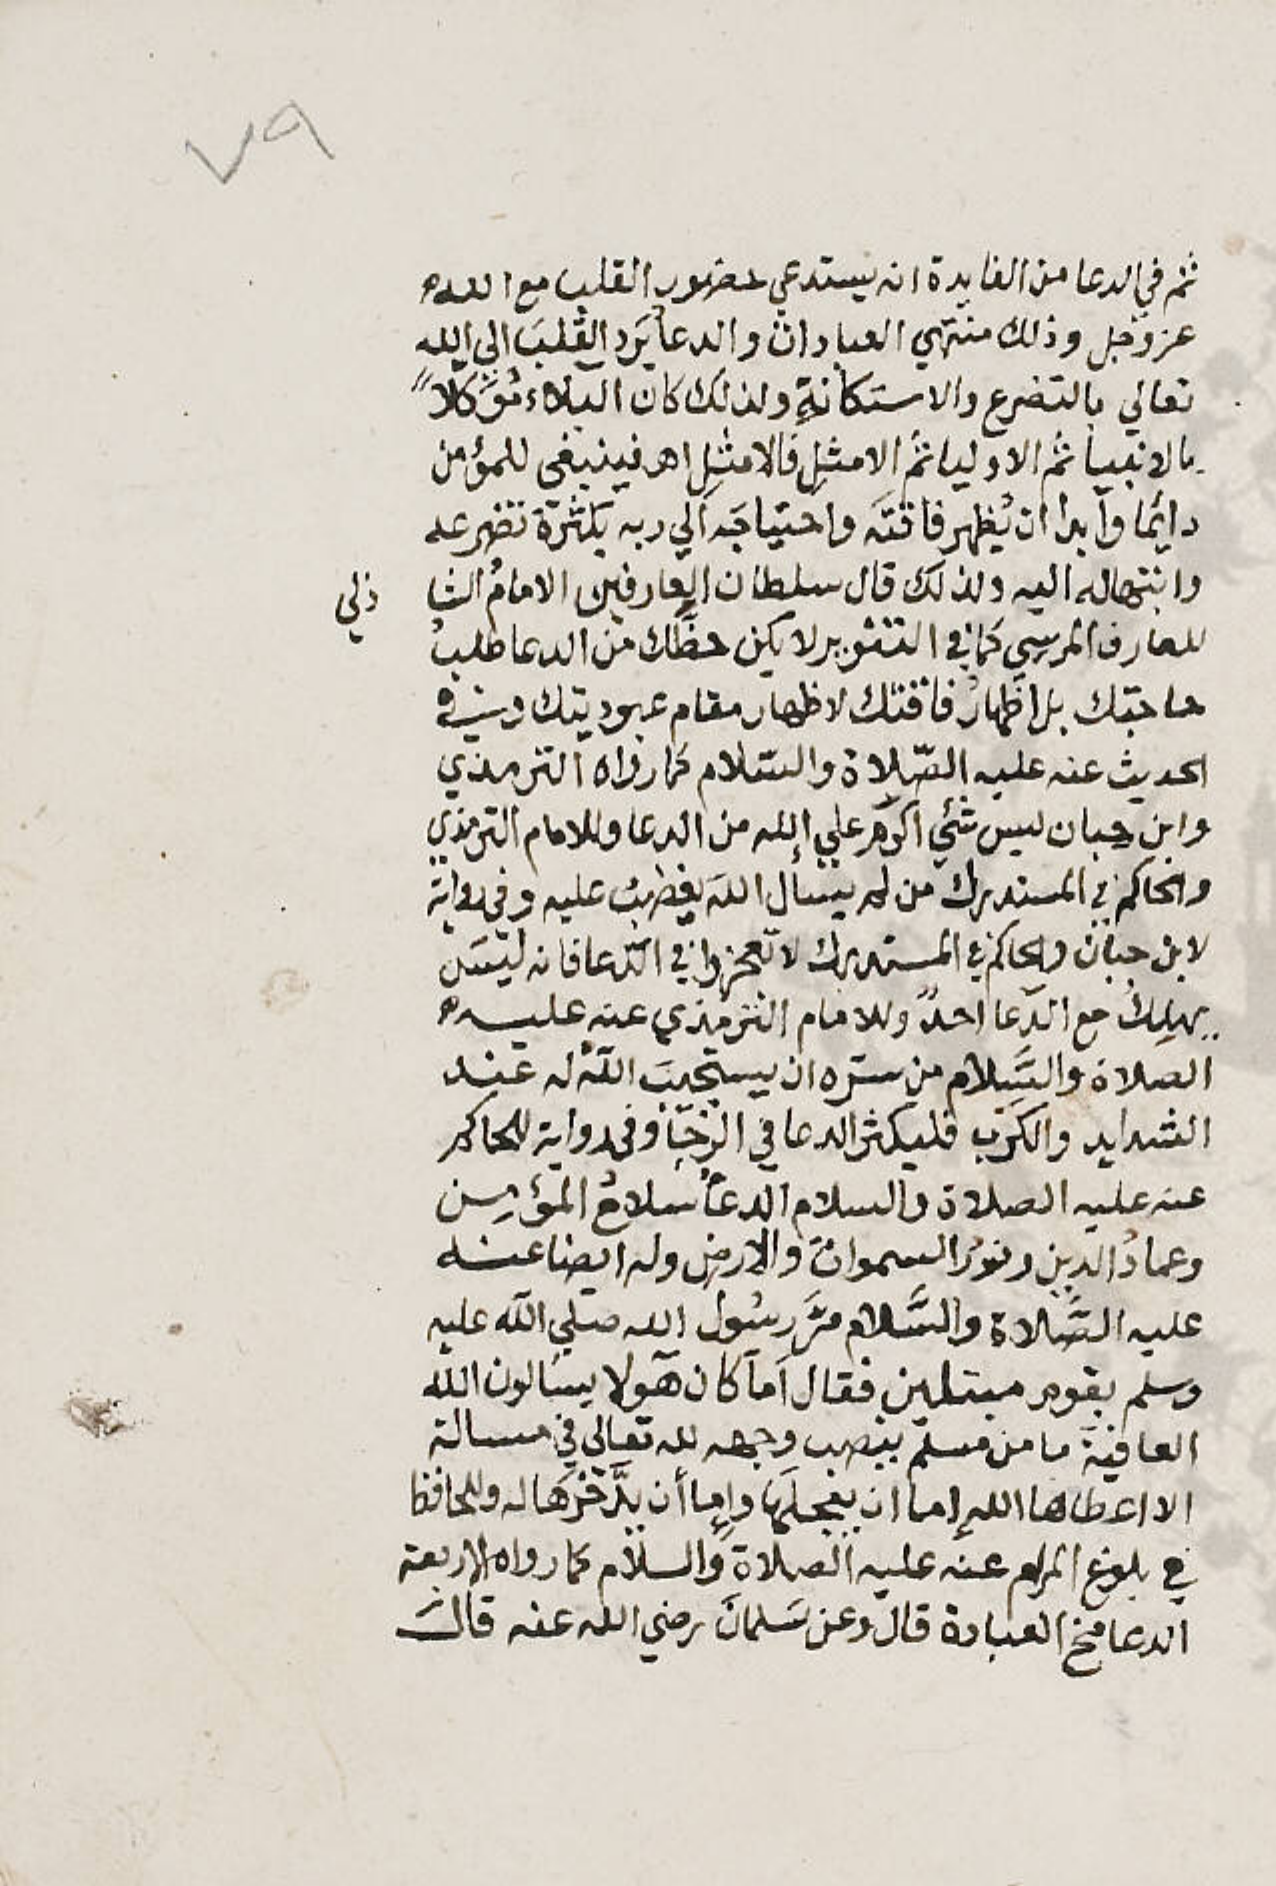 ٧٩
ثم في الدعا من الفايدة انه يستدعي حضور القلب مع الله
عز وجل وذلك منتهي العبادات والدعا يَرد القلبَ الي الله
تعالي بالتضرع والاستكانةِ ولذلك كان البلاء مُوَكلاً
بالانبيا ثم الاوليا ثُم الامثلِ فالامثِلِ اهـ فينبغى للمؤمن
دايمًا وابدا ان يُظهر فاقتَه واحتياجَه الي ربه بكثرَة تضرعه
وابتهاله اليه ولذلك قال سلطان العارفين الامامُ الشا ذلي
للعارف المرسي كما في التنوير لا يكن حظُّك من الدعا طلبُ
حاجتك بل اظهارُ فاقتك لاظهار مقام عبوديتك وفي
الحديث عنه عليه الصّلاة والسّلام كما رواه الترمذي
وابن حبان ليس شئي اكرَم علي الله من الدعا وللامام الترمذي
والحاكم في المستدرك من لم يسأل اللهَ يغضبُ عليه وفى رواية
لابن حبان والحاكم في المستدرك لا تعجزوا في الدّعا فانه ليسَ
يهلِكُ مع الدعا احدٌ وللامام الترمذي عنه عليه
الصلاة والسَّلام من سرّه ان يستجيبَ اللهُ له عند
الشدايد والكرَب فليكثر الدعا في الرخا وفى رواية للحاكم
عنه عليه الصلاة والسلام الدعا سلاحُ المؤمن
وعمادُ الدين ونورُ السموات والارض وله ايضا عنه
عليه الصَّلاة والسَّلام مَرَّ رسُول الله صلي الله عليه
وسلم بقوم مبتلين فقال اَما كان هولا يسالون الله
العافية ما من مسلم ينصب وجهه لله تعالى في مسالة
الا اعطاها الله اما ان يعجلَها وإما أن يدَّخرَها له وللحافظ
في بلوغ المرام عنه عليه الصلاة والسلام كما رواه الاربعة
الدعا مخ العبادة قال وعن سَلمانَ رضي الله عنه قالَ